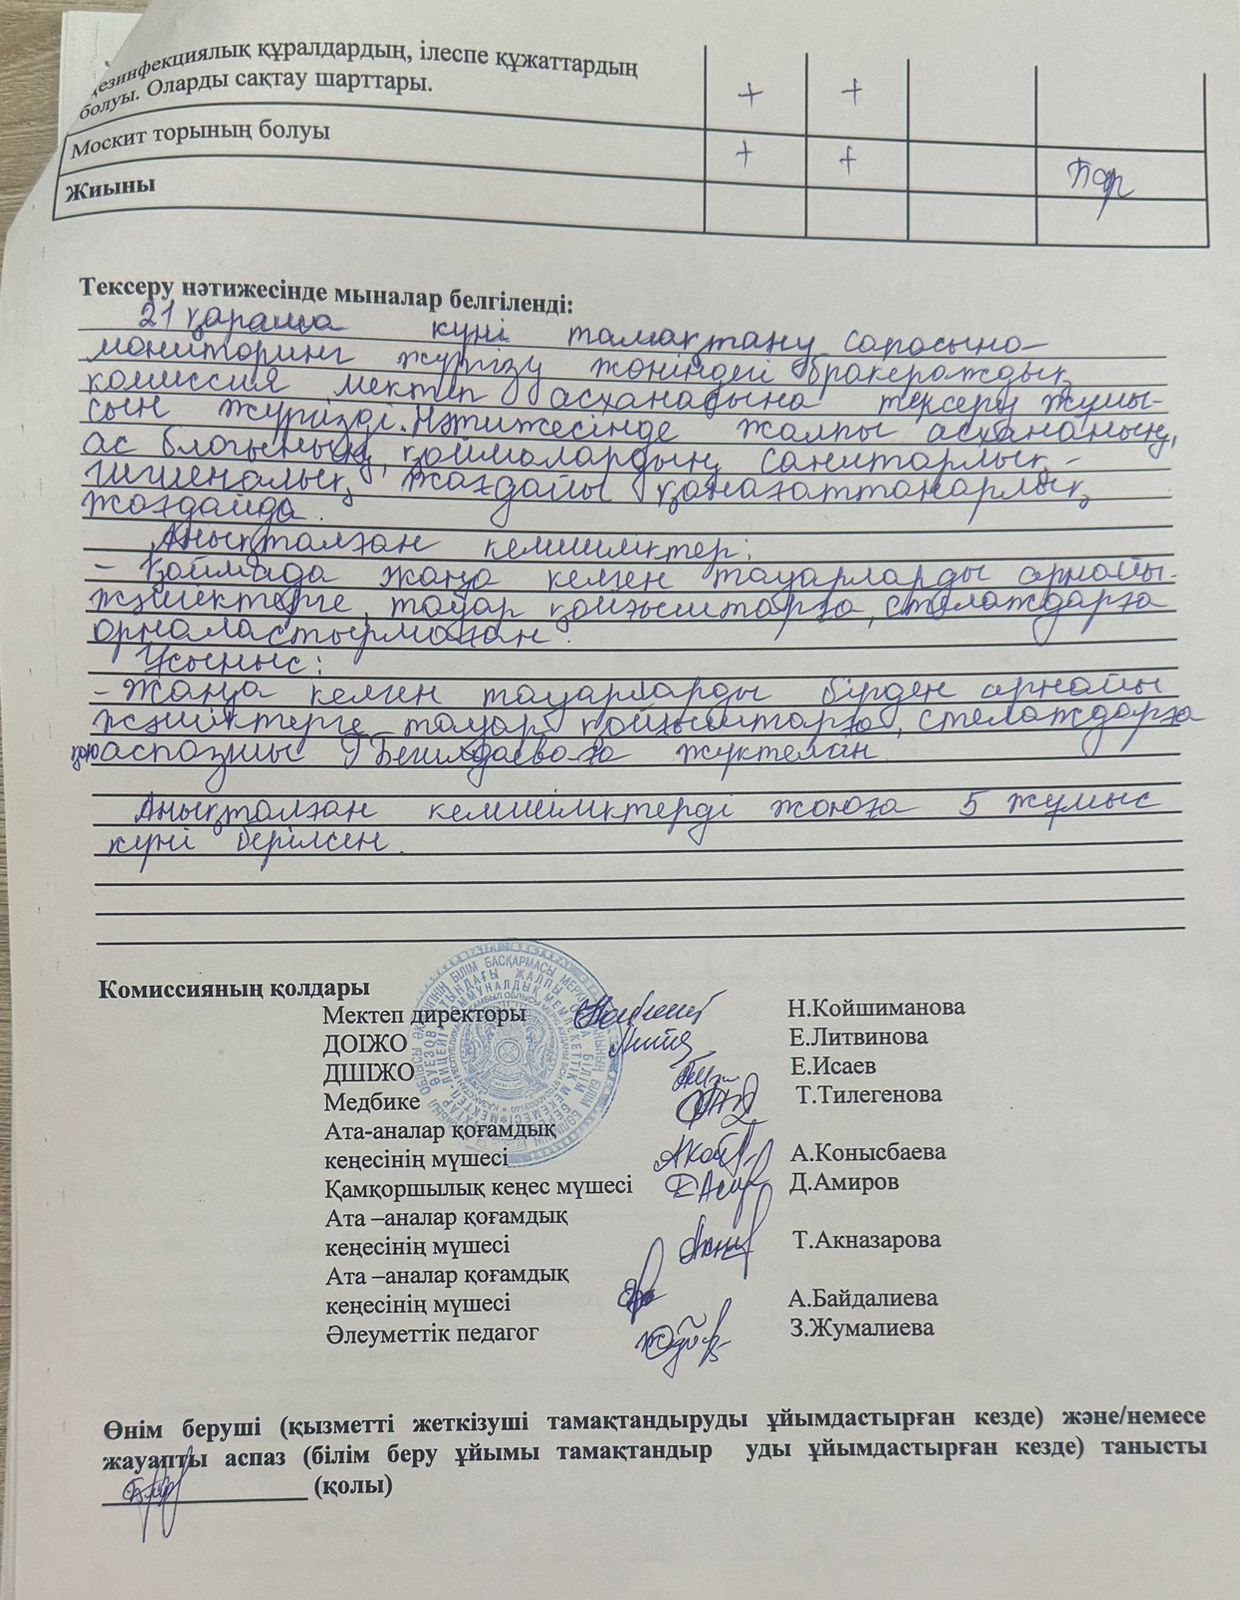 дезинфекциялық құралдардың, ілеспе құжаттардың
болуы. Оларды сақтау шарттары.
+ +
Москит торының болуы
+ + бар
Жиыны
Тексеру нәтижесінде мыналар белгіленді:
21 қараша күні тамақтану сапасына
мониторинг жүргізу жөніндегі бракераждық
комиссия мектеп асханасына тексеру жұмы-
сын жүргізді. Нәтижесінде жалпы асхананың,
ас блогының, қоймалардың санитарлық-
гигиеналық жағдайы қанағаттанарлық
жағдайда.
Анықталған кемшіліктер:
- Қоймада жаңа келген тауарларды арнайы
жәшіктерге, тауар қойғыштарға, стелаждарға
орналастырмаған.
Ұсыныс:
- Жаңа келген тауарларды бірден арнайы
жәшіктерге, тауар қойғыштарға, стелаждарға
қою аспазшы Г Бегилдаева-ға жүктелсін.
Анықталған кемшіліктерді жоюға 5 жұмыс
күні берілсен.
Комиссияның қолдары
Мектеп директоры Н.Койшиманова
ДОІЖО Е.Литвинова
ДШІЖО Е.Исаев
Медбике Т.Тилегенова
Ата-аналар қоғамдық
кеңесінің мүшесі А.Конысбаева
Қамқоршылық кеңес мүшесі Д.Амиров
Ата –аналар қоғамдық
кеңесінің мүшесі Т.Акназарова
Ата –аналар қоғамдық
кеңесінің мүшесі А.Байдалиева
Әлеуметтік педагог З.Жумалиева
Өнім беруші (қызметті жеткізуші тамақтандыруды ұйымдастырған кезде) және/немесе
жауапты аспаз (білім беру ұйымы тамақтандыр уды ұйымдастырған кезде) танысты
(қолы)